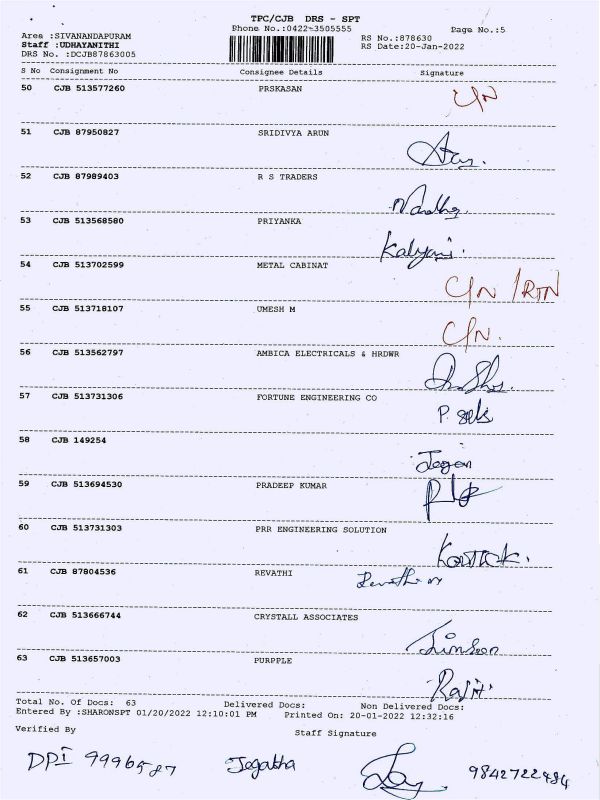 TPC/CJB DRS - SPT
Phone No.:0422-3505555
Page No.:5
Area :SIVANANDAPURAM
RS No.:878630
Staff :UDHAYANITHI
RS Date:20-Jan-2022
DRS No. :DCJB87863005
S No Consignment No Consignee Details Signature
50 CJB 513577260 PRSKASAN
C/N
51 CJB 87950827 SRIDIVYA ARUN
52 CJB 87989403 R S TRADERS
53 CJB 513568580 PRIYANKA
Kalyani.
54 CJB 513702599 METAL CABINAT
C/N /RTN
55 CJB 513718107 UMESH M
C/N.
56 CJB 513562797 AMBICA ELECTRICALS & HRDWR
57 CJB 513731306 FORTUNE ENGINEERING CO
58 CJB 149254
Jegan
59 CJB 513694530 PRADEEP KUMAR
60 CJB 513731303 PRR ENGINEERING SOLUTION
61 CJB 87804536 REVATHI
62 CJB 513666744 CRYSTALL ASSOCIATES
63 CJB 513657003 PURPPLE
Total No. Of Docs: 63 Delivered Docs: Non Delivered Docs:
Entered By :SHARONSPT 01/20/2022 12:10:01 PM Printed On: 20-01-2022 12:32:16
Verified By Staff Signature